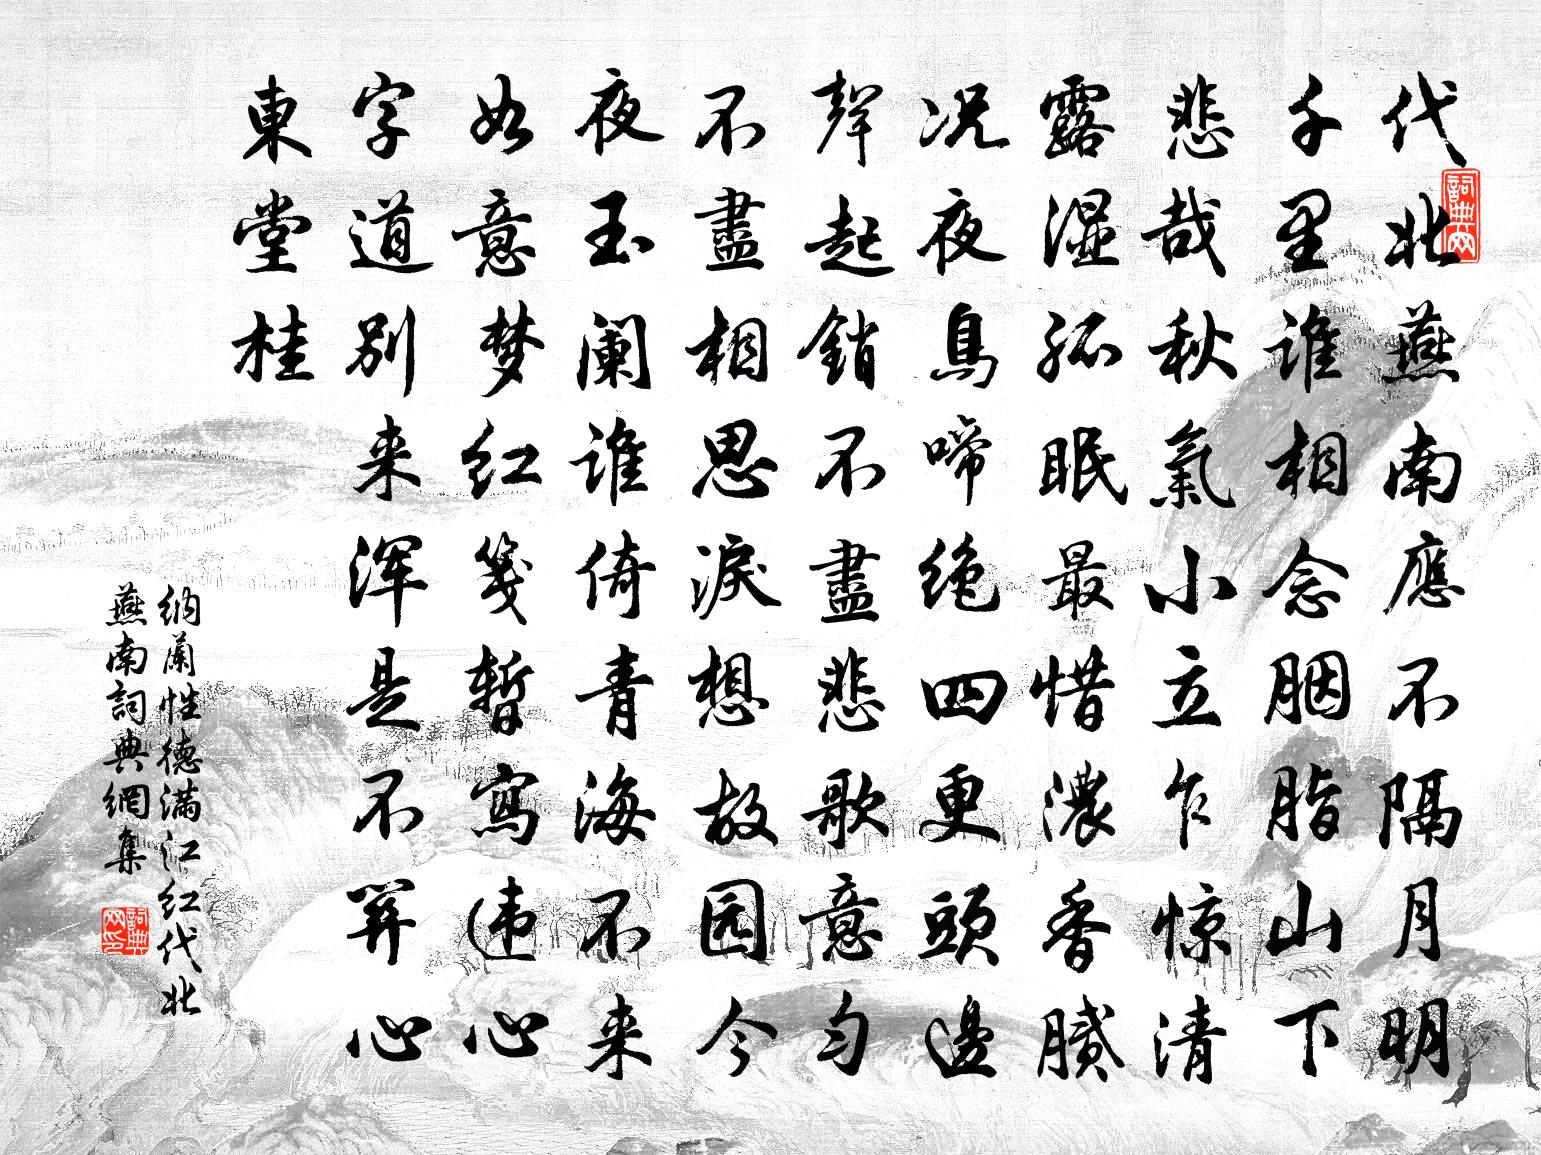 代北燕南應不隔月明
千里谁相念胭脂山下
悲哉秋氣小立乍惊清
露湿孤眠最惜濃香膩
况夜烏啼绝四更頭邊
聲起銷不盡悲歌意匀
不盡相思淚想故园今
夜玉阑谁倚青海不来
如意梦红箋暫寫违心
字道别来浑是不關心
東堂桂
纳蘭性德满江红代北
燕南詞典網集
詞典网
詞典网印